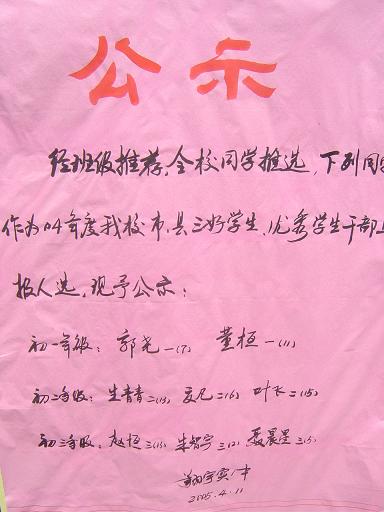 公示
经班级推荐,全校同学推选,下列同学
作为04年度我校市、县三好学生、优秀学生干部上
报人选,现予公示:
初一年级:郭尧一(7) 董桓一(11)
初二年级:生青青二(13) 夏凡二(16) 叶飞二(15)
初三年级:赵恒三(15) 朱智宇三(2) 聂晨星三(5)
翔宇实中
2005.4.11